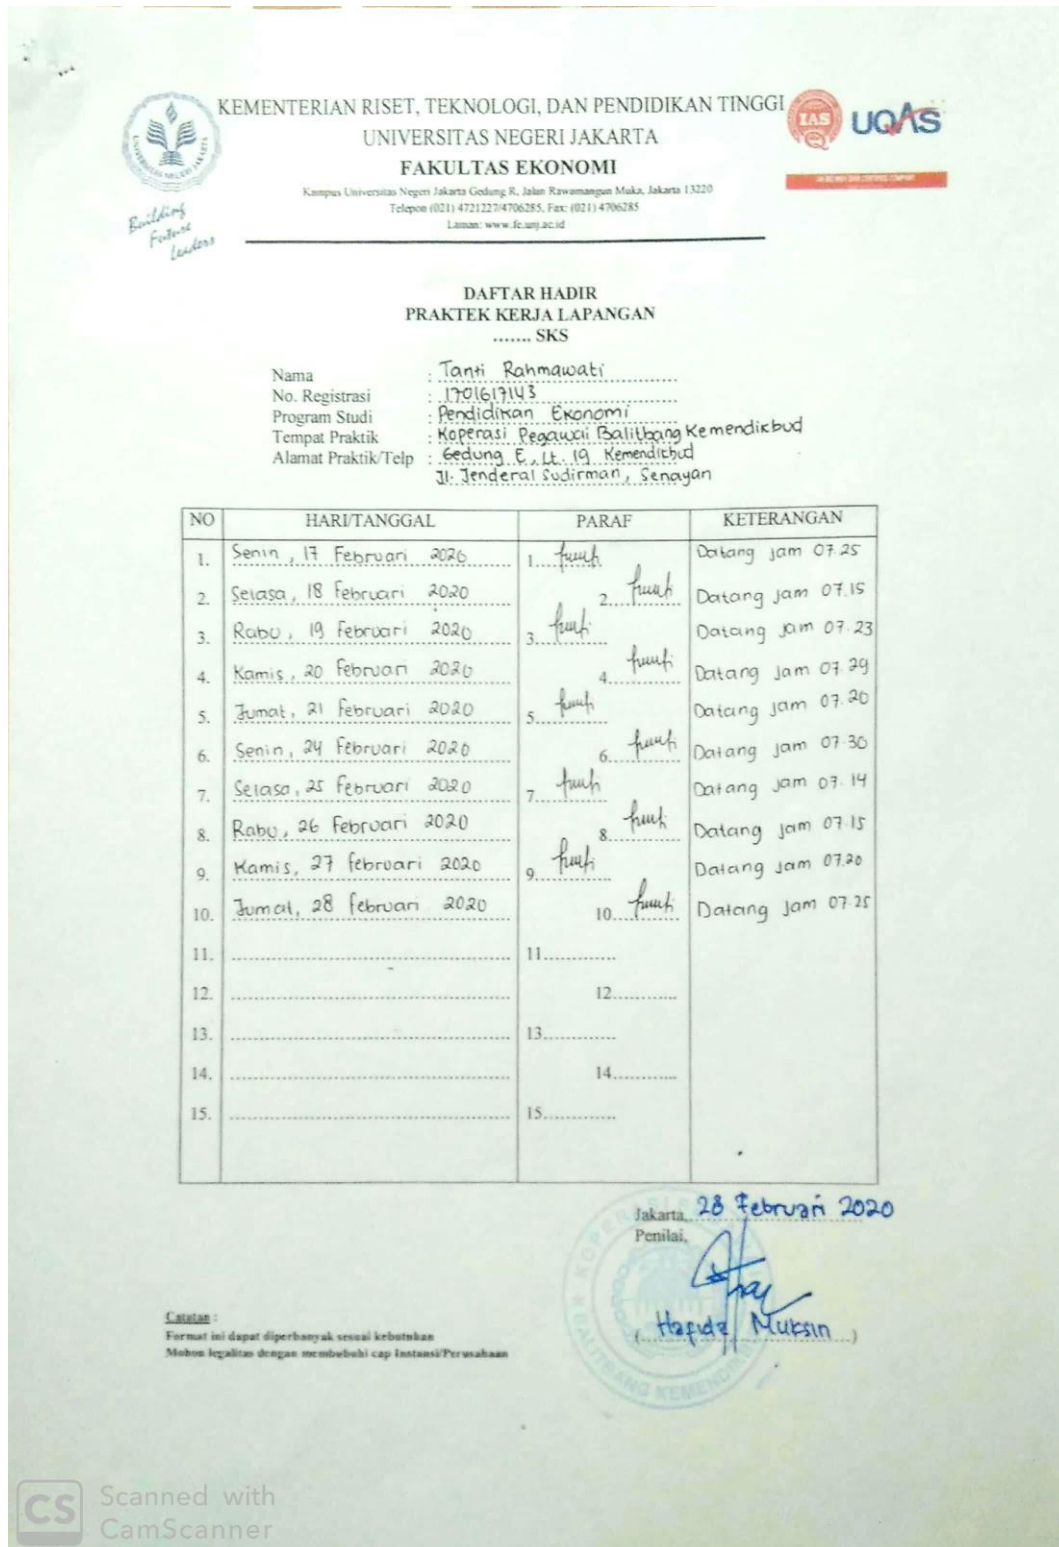 KEMENTERIAN RISET, TEKNOLOGI, DAN PENDIDIKAN TINGGI
UNIVERSITAS NEGERI JAKARTA
FAKULTAS EKONOMI
Kampus Universitas Negeri Jakarta Gedung R, Jalan Rawamangun Muka, Jakarta 13220
Telepon (021) 4721227/4706285, Fax: (021) 4706285
Laman: www.fe.unj.ac.id
UNIVERSITAS NEGERI JAKARTA
Building
Future
Leaders
IAS
UQAS
DAFTAR HADIR
PRAKTEK KERJA LAPANGAN
....... SKS
Nama : Tanti Rahmawati
No. Registrasi : 1701617143
Program Studi : Pendidikan Ekonomi
Tempat Praktik : Koperasi Pegawai Balitbang Kemendikbud
Alamat Praktik/Telp : Gedung E, Lt. 19 Kemendikbud
Jl. Jenderal Sudirman, Senayan
NO HARI/TANGGAL PARAF KETERANGAN
1. Senin, 17 Februari 2020 1. Datang jam 07.25
2. Selasa, 18 Februari 2020 2. Datang jam 07.15
3. Rabu, 19 Februari 2020 3. Datang jam 07.23
4. Kamis, 20 Februari 2020 4. Datang jam 07.29
5. Jumat, 21 Februari 2020 5. Datang jam 07.20
6. Senin, 24 Februari 2020 6. Datang jam 07.30
7. Selasa, 25 Februari 2020 7. Datang jam 07.14
8. Rabu, 26 Februari 2020 8. Datang jam 07.15
9. Kamis, 27 Februari 2020 9. Datang jam 07.20
10. Jumat, 28 Februari 2020 10. Datang jam 07.25
11. 11.
12. 12.
13. 13.
14. 14.
15. 15.
Jakarta, 28 Februari 2020
Penilai,
(Hafidz Muksin)
BALITBANG KEMENDIKBUD
Catatan :
Format ini dapat diperbanyak sesuai kebutuhan
Mohon legalitas dengan membubuhi cap Instansi/Perusahaan
CS
Scanned with
CamScanner